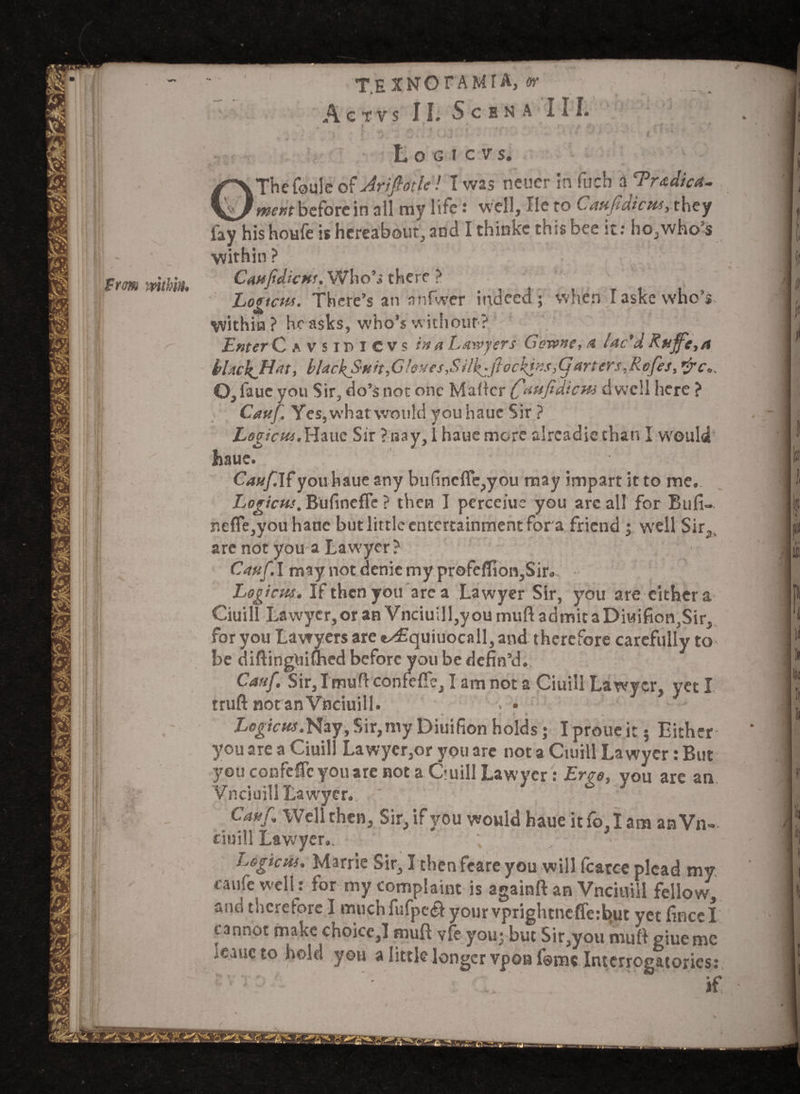 ΤΕΧΝΟΓΑΜΙΑ, or
Actvs II. Scena III.
Logicvs.
O The ſoule of Ariſtotle! I was neuer in ſuch a Prædica-
ment before in all my life: well, Ile to Cauſidicus, they
ſay his houſe is hereabout, and I thinke this bee it: ho, who's
within?
From within.
Cauſidicus. Who's there?
Logicus. There's an anſwer indeed; when I aske who's
within? he asks, who's without?
Enter Cavsidicvs in a Lawyers Gowne, a lac'd Ruffe, a
black Hat, black Suit, Gloues, Silk-ſtockins, Garters, Roſes, &c.
O, ſaue you Sir, do's not one Maſter Cauſidicus dwell here?
Cauſ. Yes, what would you haue Sir?
Logicus. Haue Sir? nay, I haue more alreadie than I would
haue.
Cauſ. If you haue any buſineſſe, you may impart it to me.
Logicus. Buſineſſe? then I perceiue you are all for Buſi-
neſſe, you haue but little entertainment for a friend; well Sir,
are not you a Lawyer?
Cauſ. I may not denie my profeſſion, Sir.
Logicus. If then you are a Lawyer Sir, you are either a
Ciuill Lawyer, or an Vnciuill, you muſt admit a Diuiſion, Sir,
for you Lawyers are Æquiuocall, and therefore carefully to
be diſtinguiſhed before you be defin'd.
Cauſ. Sir, I muſt confeſſe, I am not a Ciuill Lawyer, yet I
truſt not an Vnciuill.
Logicus. Nay, Sir, my Diuiſion holds; I proue it; Either
you are a Ciuill Lawyer, or you are not a Ciuill Lawyer: But
you confeſſe you are not a Ciuill Lawyer: Ergo, you are an
Vnciuill Lawyer.
Cauſ. Well then, Sir, if you would haue it ſo, I am an Vn-
ciuill Lawyer.
Logicus. Marrie Sir, I then feare you will ſcarce plead my
cauſe well: for my complaint is againſt an Vnciuill fellow,
and therefore I much ſuſpect your vprightneſſe: but yet ſince I
cannot make choice, I muſt vſe you; but Sir, you muſt giue me
leaue to hold you a little longer vpon ſome Interrogatories:
if